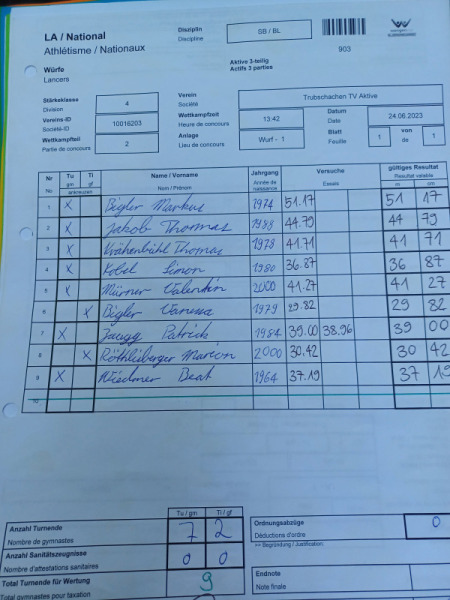 LA / National
Athlétisme / Nationaux
Disziplin
Discipline
SB / BL
903
Würfe
Lancers
Aktive 3-teilig
Actifs 3 parties
Stärkeklasse
Division
4
Verein
Société
Trubschachen TV Aktive
Vereins-ID
Société-ID
10016203
Wettkampfzeit
Heure de concours
13:42
Datum
Date
24.06.2023
Wettkampfteil
Partie de concours
2
Anlage
Lieu de concours
Wurf - 1
Blatt
Feuille
1
von
de
1
Nr Tu Ti Name / Vorname Jahrgang Versuche gültiges Resultat
No gm gf Nom / Prénom Année de naissance Essais Résultat valable
ankreuzen m cm
1 X Bigler Markus 1974 51.17 51 17
2 X Jakob Thomas 1988 44.79 44 79
3 X Krähenbühl Thomas 1978 41.71 41 71
4 X Kobel Simon 1980 36.87 36 87
5 X Mürner Valentin 2000 41.27 41 27
6 X Bigler Vanessa 1979 29.82 29 82
7 X Zaugg Patrick 1984 39.00 38.96 39 00
8 X Röthlisberger Marion 2000 30.42 30 42
9 X Wiedmer Beat 1964 37.19 37 19
10
Tu / gm Ti / gf
Anzahl Turnende
Nombre de gymnastes
7 2
Ordnungsabzüge
Déductions d'ordre
0
>> Begründung / Justification
Anzahl Sanitätszeugnisse
Nombre d'attestations sanitaires
0 0
Total Turnende für Wertung
Total gymnastes pour taxation
9
Endnote
Note finale